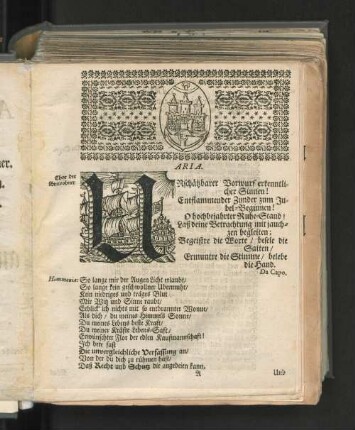 ARIA.
Chor der
Einwohner.
UNschätzbarer Vorwurf erkenntli-
cher Sinnen!
Entflammender Zunder zum Ju-
bel-Beginnen!
O hochbejahrter Ruhe-Stand/
Laß deine Betrachtung mit jauch-
zen begleiten;
Begeistre die Worte/ beseele die
Saiten/
Ermuntre die Stimme/ belebe
die Hand.
Da Capo.
Hammonia: So lange mir der Augen Licht erlaubt/
So lange kein geschwollner Übermuth/
Kein niedriges und träges Blut
Mir Witz und Sinne raubt/
Erblick' ich nichts mit so entbrannter Wonne/
Als dich/ du meines Himmels Sonne/
Du meines Lebens beste Krafft/
Du meiner Kräfte Lebens-Saft/
Erwünschter Flor der edlen Kaufmannschaft!
Ich here fast
Die unvergleichliche Verfassung an/
Von der du dich zu rühmen hast/
Daß Recht und Schutz dir angedeien kann,
A
Und